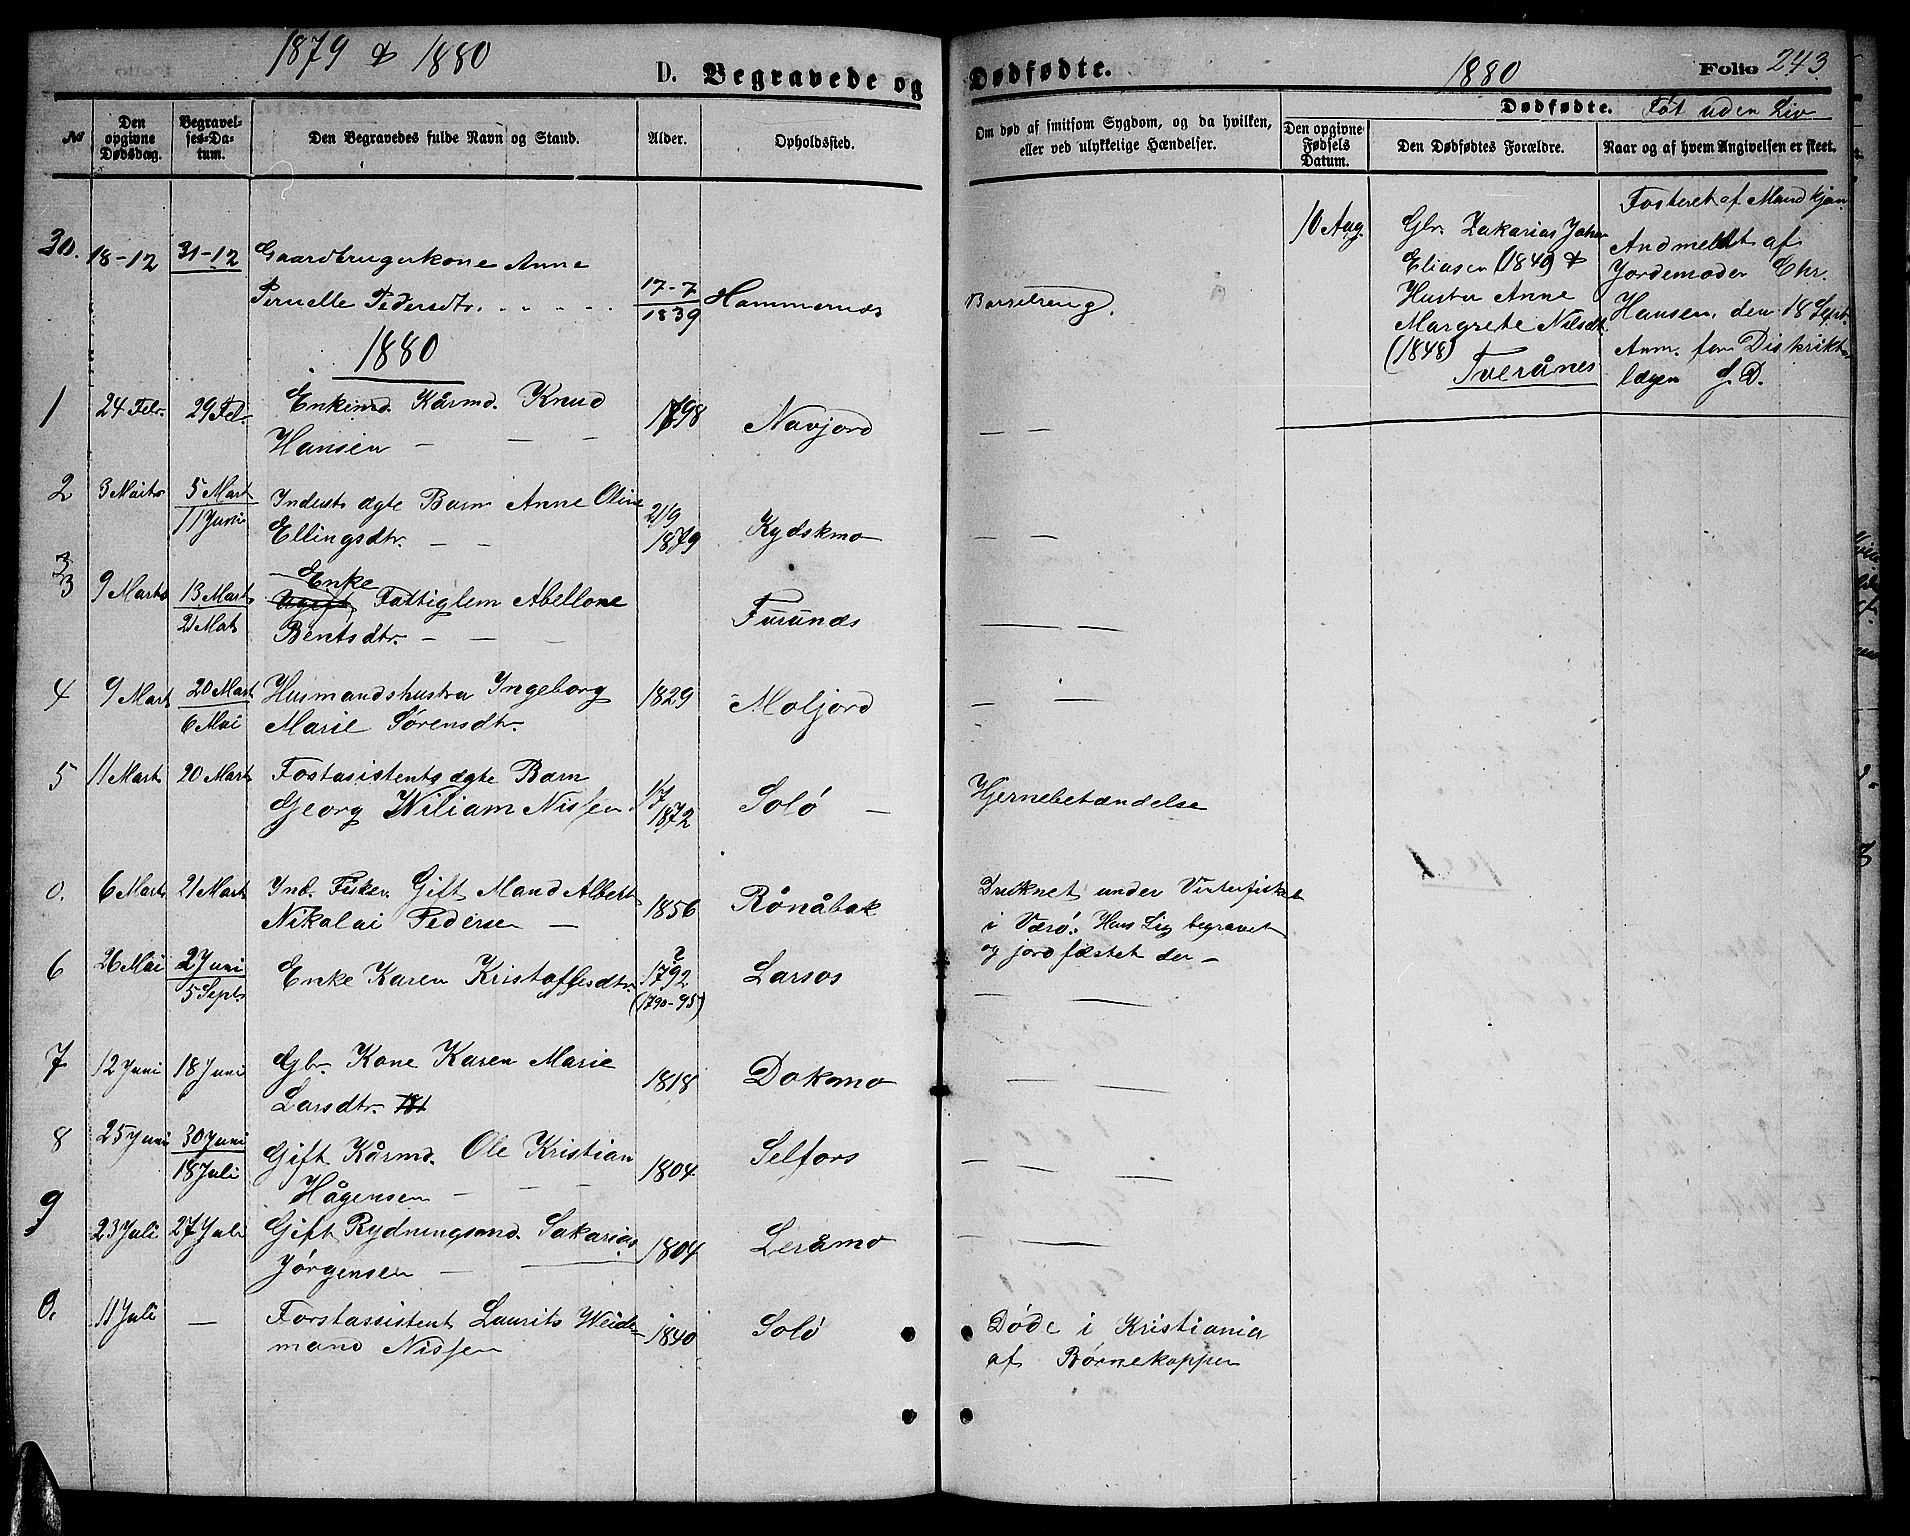 1879 & 1880
D. Begravede og
Dødfødte.
1880
Folio 243
№
Den opgivne Dødsdag.
Begravelses-Datum.
Den Begravedes fulde Navn og Stand.
Alder.
Opholdssted.
Om død af smitsom Sygdom, og da hvilken,
eller ved ulykkelige Hændelser.
Dødfødte. Føt uden Liv
Den opgivne Fødsels Datum.
Den Dødfødtes Forældre.
Naar og af hvem Angivelsen er skeet.
30. 18-12 31-12 Gaardbrugerkone Anne
Pernelle Pedersdtr. 17-7 1839 Hammernes Barselseng.
1880
1 24 Febr. 29 Feb. Enkemd. Kårmd. Knud
Hansen — — — 1798 Navjord — —
2 3 Marts 5 Mart 11 Juni Inderst ægte Barn Anne Oline
Ellingsdtr. — — 21/9 1879 Kydskmo — —
3 9 Marts 13 Mart 21 Mat Enke
Ugift Fattiglem Abellone
Bentsdtr. — — — Furunes
4 9 Mart 20 Mart 6 Mai Husmandshustru Ingeborg
Marie Sørensdtr. 1829 Moljord — —
5 11 Mart 20 Mart Fostasistents ægte Barn
Georg Wiliam Nissen 1872 Solö — Hjernebetændelse
0. 6 Mart 21 Mart Ind. Fisker. Gift Mand Albert
Nikolai Pedersen — 1856 Rönåbak Druknet under Vinterfisket
i Værö. Hans Lig begravet
og jordfæstet der —
6 26 Mai 2 Juni 5 Septr Enke Karen Kristoffesdtr. ? 1792 (1790-95) Larsos — —
7 12 Juni 18 Juni Gbr. Kone Karen Marie
Larsdtr. 1818 Dokmo — —
8 25 Juni 30 Juni 18 Juli Gift Kårmd. Ole Kristian
Hågensen — — — 1804 Selfors — —
9 23 Juli 27 Juli Gift Rydningsmd. Sakarias
Jørgensen — — 1804 Leråmo — —
0. 11 Juli — Forstassistent Laurits Weide-
mand Nissen 1840 Solö Døde i Kristiania
af Børnekopper
10 Aug.
Gbr. Zakarias Johan
Eliasen (1840) &
Hustru Anne
Margrete Nilsdt.
(1848)
Tverånes
Fosteret af Mandkjøn
Andmeldt af
Jordemoder Chr.
Hansen, den 18 Sept.
Anm. for Distrikts
lægen S. D.